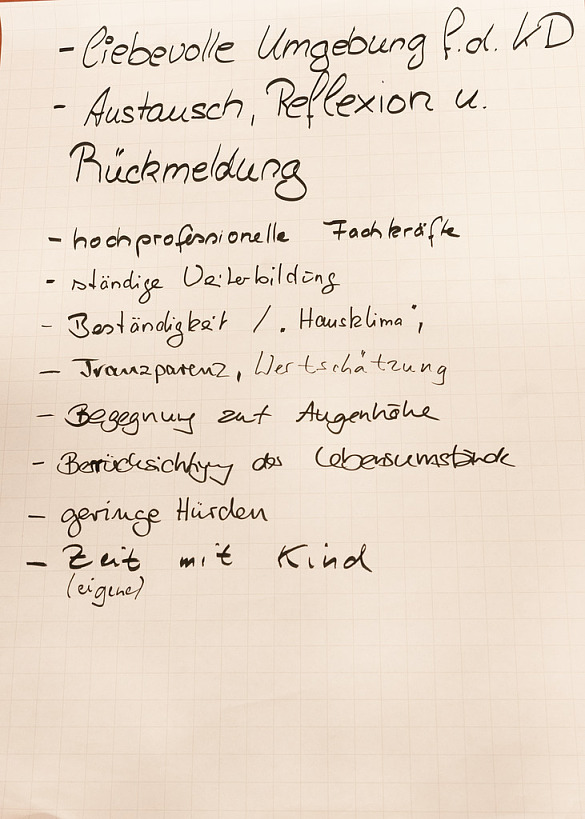 - liebevolle Umgebung f.d. KD
- Austausch, Reflexion u.
Rückmeldung
- hochprofessionelle Fachkräfte
- ständige Weiterbildung
- Beständigkeit / "Hausklima",
- Tranzparenz, Wertschätzung
- Begegnung auf Augenhöhe
- Berücksichtigung der Lebensumstände
- geringe Hürden
- Zeit mit Kind
(eigene)